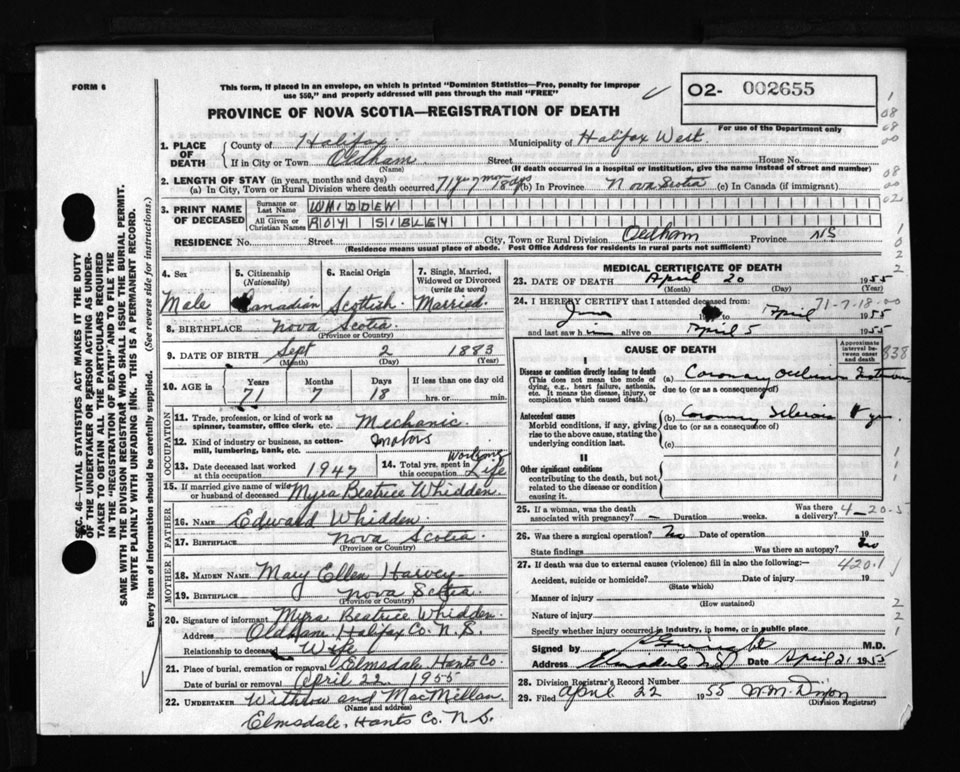 FORM 6
This form, if placed in an envelope, on which is printed "Dominion Statistics—Free, penalty for improper
use $50," and properly addressed will pass through the mail "FREE"
O2- 002655
For use of the Department only
PROVINCE OF NOVA SCOTIA—REGISTRATION OF DEATH
1. PLACE OF DEATH
County of Halifax Municipality of Halifax West
If in City or Town Oldham Street House No.
(Name) (If death occurred in a hospital or institution, give the name instead of street and number)
2. LENGTH OF STAY (in years, months and days)
(a) In City, Town or Rural Division where death occurred 71 yrs 7 mos 18 dys (b) In Province Nova Scotia (c) In Canada (if immigrant)
3. PRINT NAME OF DECEASED
Surname or Last Name WHIDDEN
All Given or Christian Names ROY SIBLEY
RESIDENCE No. Street City, Town or Rural Division Oldham Province NS
(Residence means usual place of abode. Post Office Address for residents in rural parts not sufficient)
4. Sex
Male
5. Citizenship
(Nationality)
Canadian
6. Racial Origin
Scottish
7. Single, Married, Widowed or Divorced
(write the word)
Married
8. BIRTHPLACE Nova Scotia
9. DATE OF BIRTH Sept 2 1883
(Month) (Day) (Year)
10. AGE in
Years Months Days If less than one day old
71 7 18 hrs. or min.
OCCUPATION
11. Trade, profession, or kind of work as
spinner, teamster, office clerk, etc. Mechanic
12. Kind of industry or business, as cotton-
mill, lumbering, bank, etc. Motors
13. Date deceased last worked
at this occupation 1947
14. Total yrs. spent in
this occupation Working Life
15. If married give name of wife
or husband of deceased Myra Beatrice Whidden
FATHER
16. NAME Edward Whidden
17. BIRTHPLACE Nova Scotia
(Province or Country)
MOTHER
18. MAIDEN NAME Mary Ellen Harvey
19. BIRTHPLACE Nova Scotia
(Province or Country)
20. Signature of informant Myra Beatrice Whidden
Address Oldham Halifax Co. N.S.
Relationship to deceased Wife
21. Place of burial, cremation or removal Elmsdale Hants Co.
Date of burial or removal April 22 1955
22. UNDERTAKER Withrow and MacMillan
(Name and address)
Elmsdale, Hants Co. N.S.
MEDICAL CERTIFICATE OF DEATH
23. DATE OF DEATH April 20 1955
(Month) (Day) (Year)
24. I HEREBY CERTIFY that I attended deceased from: 71-7-18-00
to April 1955
and last saw him alive on April 5 1955
CAUSE OF DEATH
Approximate interval between onset and death
838
I
Disease or condition directly leading to death
(This does not mean the mode of dying, e.g., heart failure, asthenia, etc. It means the disease, injury, or complication which caused death.)
(a) Coronary Occlusion
due to (or as a consequence of)
Antecedent causes
Morbid conditions, if any, giving rise to the above cause, stating the underlying condition last.
(b) Coronary Sclerosis
due to (or as a consequence of)
(c)
II
Other significant conditions
contributing to the death, but not related to the disease or condition causing it.
25. If a woman, was the death
associated with pregnancy? — Duration weeks. Was there a delivery?
4-20-5
26. Was there a surgical operation? No Date of operation 19
State findings Was there an autopsy? No
27. If death was due to external causes (violence) fill in also the following:—
420.1
Accident, suicide or homicide? Date of injury 19
(State which)
Manner of injury
(How sustained)
Nature of injury
Specify whether injury occurred in industry, ip home, or in public place
Signed by M.D.
Address Date April 21 1955
28. Division Registrar's Record Number
29. Filed April 22 1955 W.M. Dixon
(Division Registrar)
SEC. 46—VITAL STATISTICS ACT MAKES IT THE DUTY
OF THE UNDERTAKER OR PERSON ACTING AS UNDER-
TAKER TO OBTAIN ALL THE PARTICULARS REQUIRED
IN THE "REGISTRATION OF DEATH" AND TO FILE THE
SAME WITH THE DIVISION REGISTRAR WHO SHALL ISSUE THE BURIAL PERMIT.
WRITE PLAINLY WITH UNFADING INK. THIS IS A PERMANENT RECORD.
Every item of information should be carefully supplied. (See reverse side for instructions.)